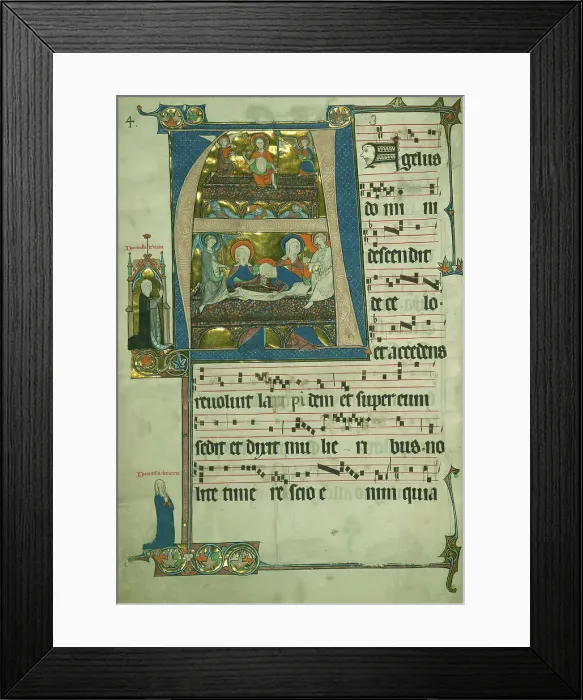 4.
3
Agelus
do mi ni
descendit
de ce lo.
et accedens
revoluit lap pi dem et super eum
sedit et dixit mu lie ri bus. no
lite time re scio e nim quia